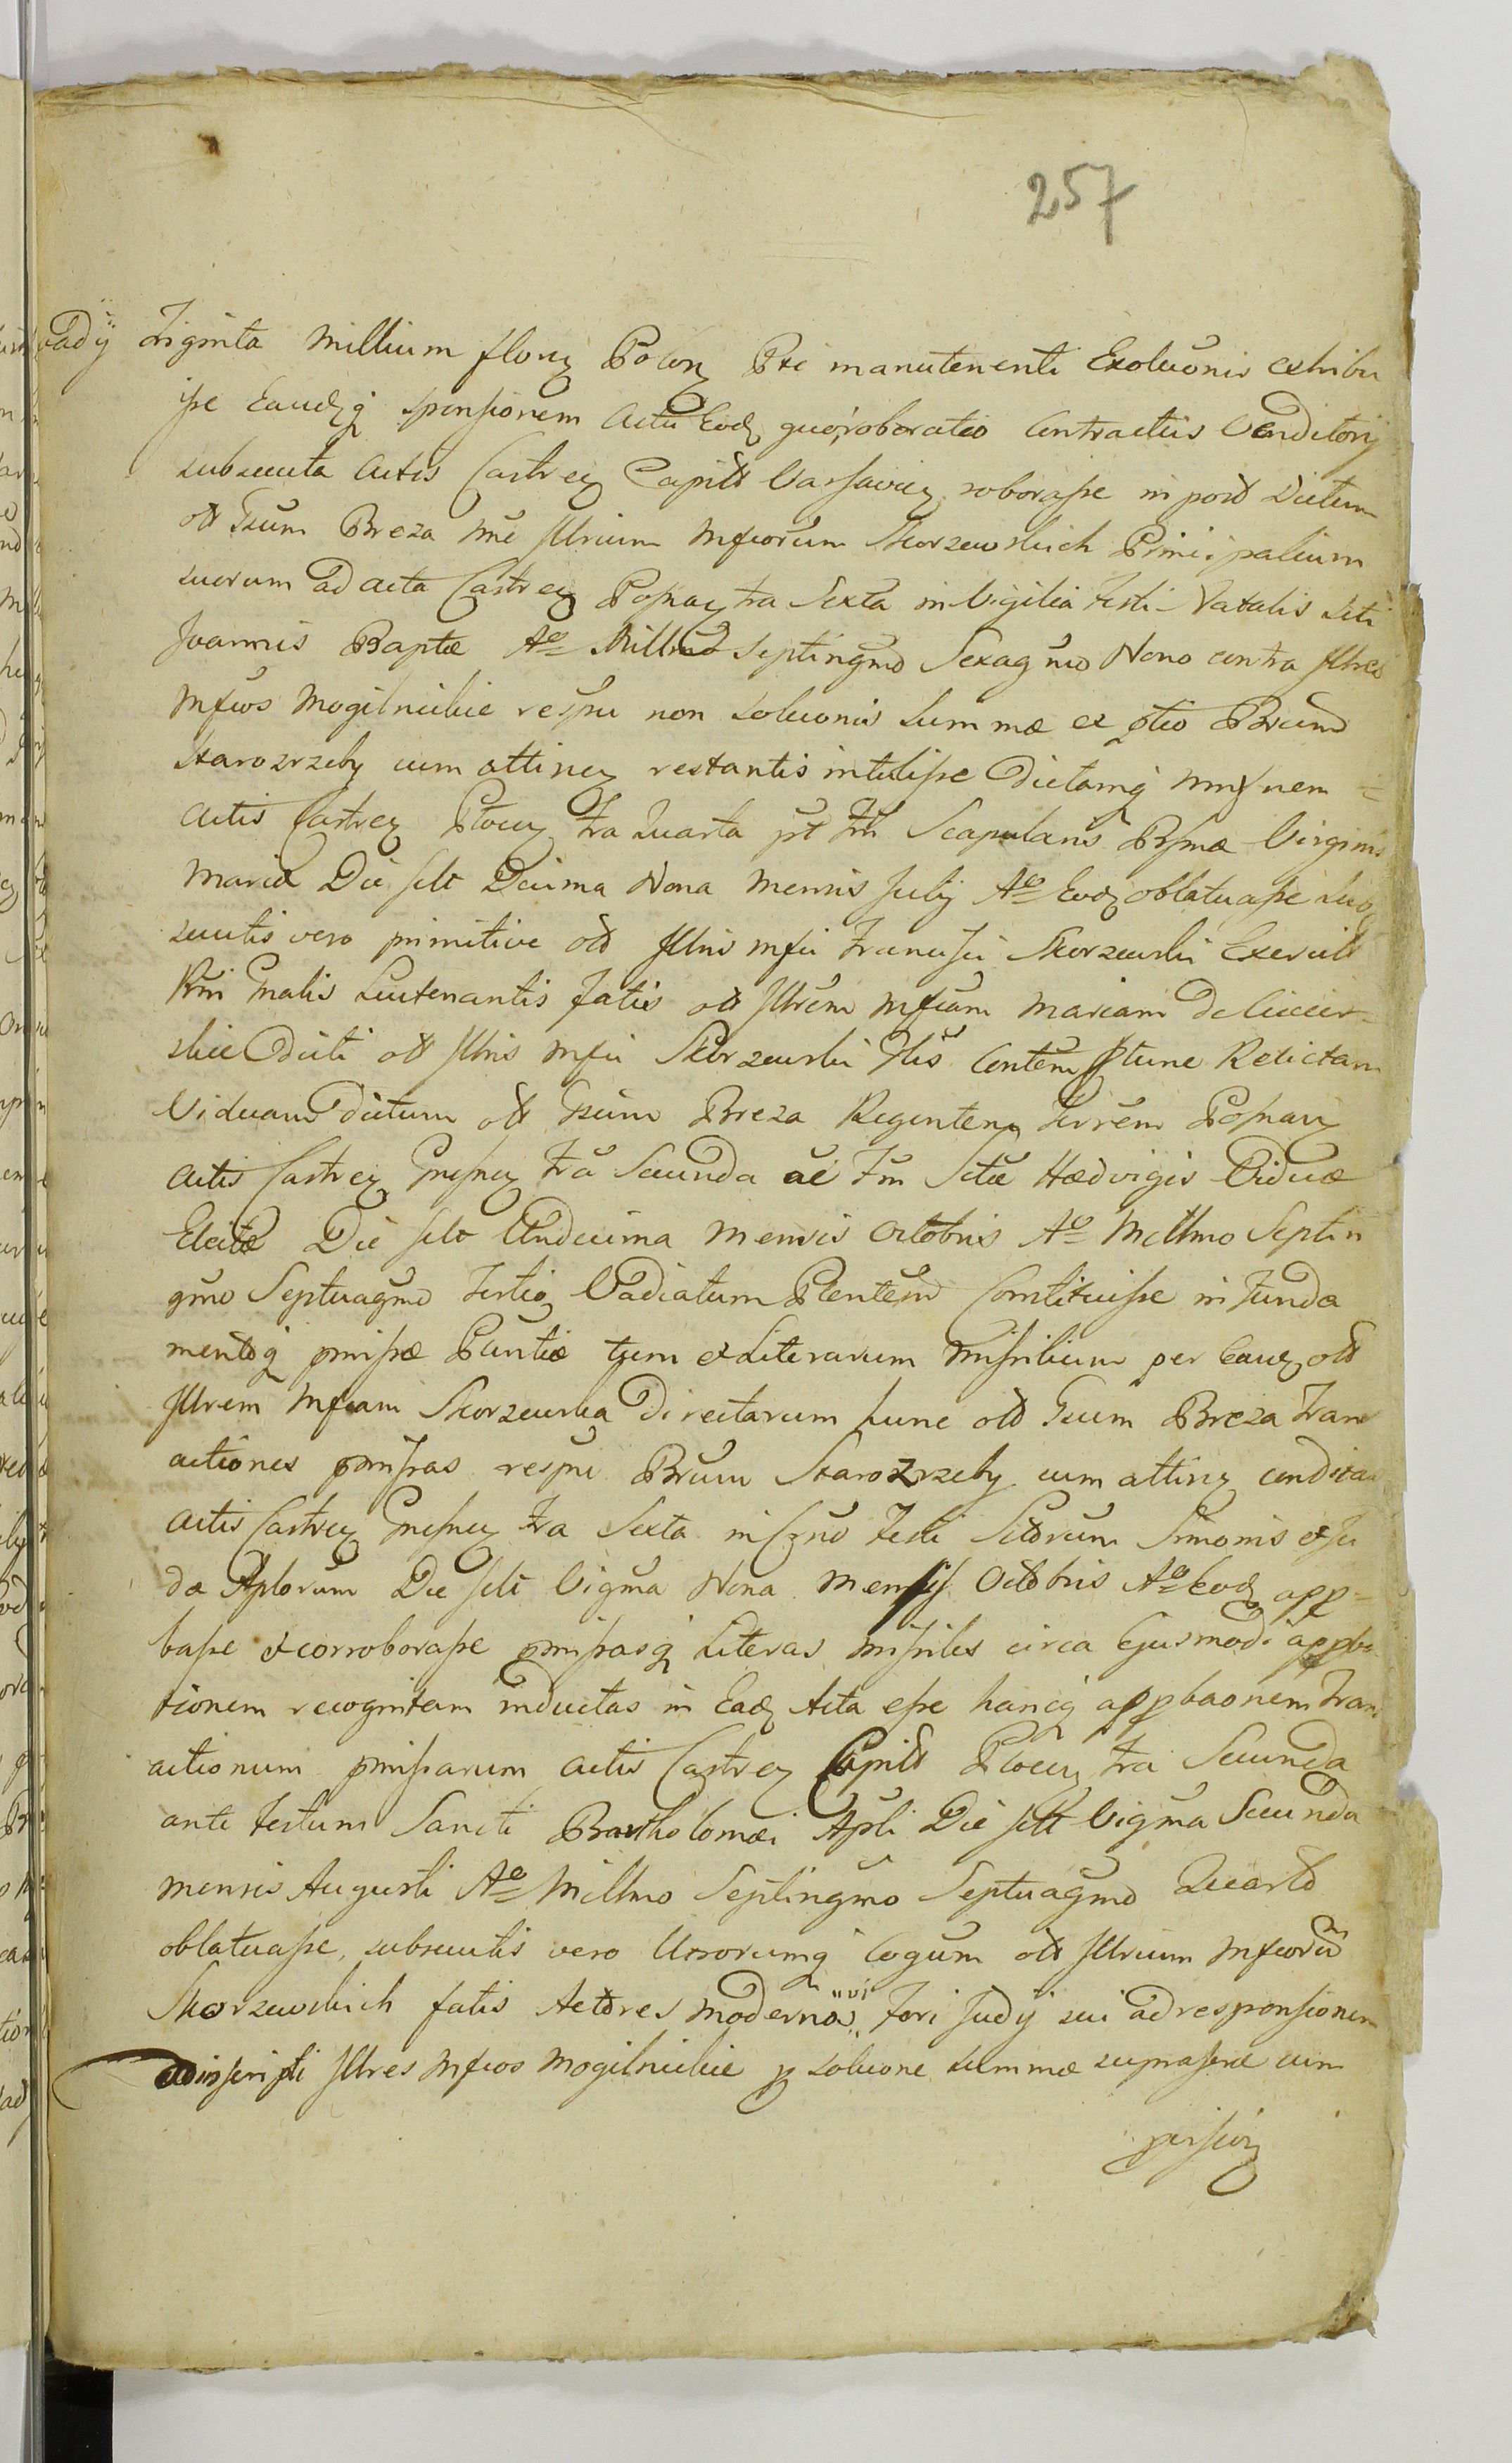 257
vady Triginta Millium floren Polon Pte manutenenti Exoluonis exhibu
isse Eandq sponsionem Actu Eod quo roboratio Contractus Venditorij
subsecuta Actis Castren Capitt Varsavien roborasse in post Dictum
ott Gsum Breza nne Jllrium Mfcorum Skorzewskich Principalium
suorum ad acta Castren Posnan fra Sexta in Vigilia Festi Natalis Scti
Joannis Baptæ Aº Millmo Septingmo Sexagmo Nono contra Jllres
Mfcos Mogilnickie respu non Soluonis Summæ ex ptio Brum
Starozrzeby cum attinen restantis intulisse Dictamq
Actis Castren Plocen fra Quarta pt Fm Scapularis Bssmæ Virginis
Mariæ Die sclt Decima Nona Mensis Julij Aº Eod oblatuasse Sub
secutis vero primitive ott Jllris Mfci Francisci Skorzewski Exercitt
Rni Gnalis Leutenantis fatis ott Jllrem Mfcam Mariam de Ciecier=
skie Dicti ott Jllris Mfci Skorzewski Glis Contem tunc Relictam
Viduam Dictum ott Gsum Breza Regentem Terrem Posnan
Actis Castren Gnesnen fra Secunda ae Fm Sctæ Hædvigis Viduæ
Electæ Die sclt Undecima Mensis Octobris Aº Millmo Septin
gmo Septuagmo Tertio Vadiatum Plentem Constituisse in Funda
mentoq pmissæ Plentiæ tum et Literarum Missilium per Eand ott
Jllrem Mfcam Skorzewska Directarum hunc ott Gsum Breza Trans
actiones pmissas respu Brum Starozrzeby cum attinen conditas
Actis Castren Gnesnen fra Sexta in Festi Sctorum Simonis et Ju
dæ Aplorum Die sclt Vigma Nona Mensis Octobris Aº Eod appro=
basse et corroborasse pmissasq Literas missiles circa Ejusmodi appba
tionem recognitam inductas in Ead Acta esse hancq appbaonem Trans
actionum pmissarum Actis Castren Capitt Plocen fra Secunda
ante Festum Sancti Bartholomæi Apli Die sctt Vigma Secunda
Mensis Augusti Aº Millmo Septingmo Septuagmo Quarto
oblatuasse, subsecutis vero Utrorumq Cogum ott Jllrium Mfcorum
Skorzewskich fatis Actores modernos Fori Judij sui ad responsionem
adinscripti Jllres Mfcos Mogilnickie p Soluone Summæ suprascræ cum